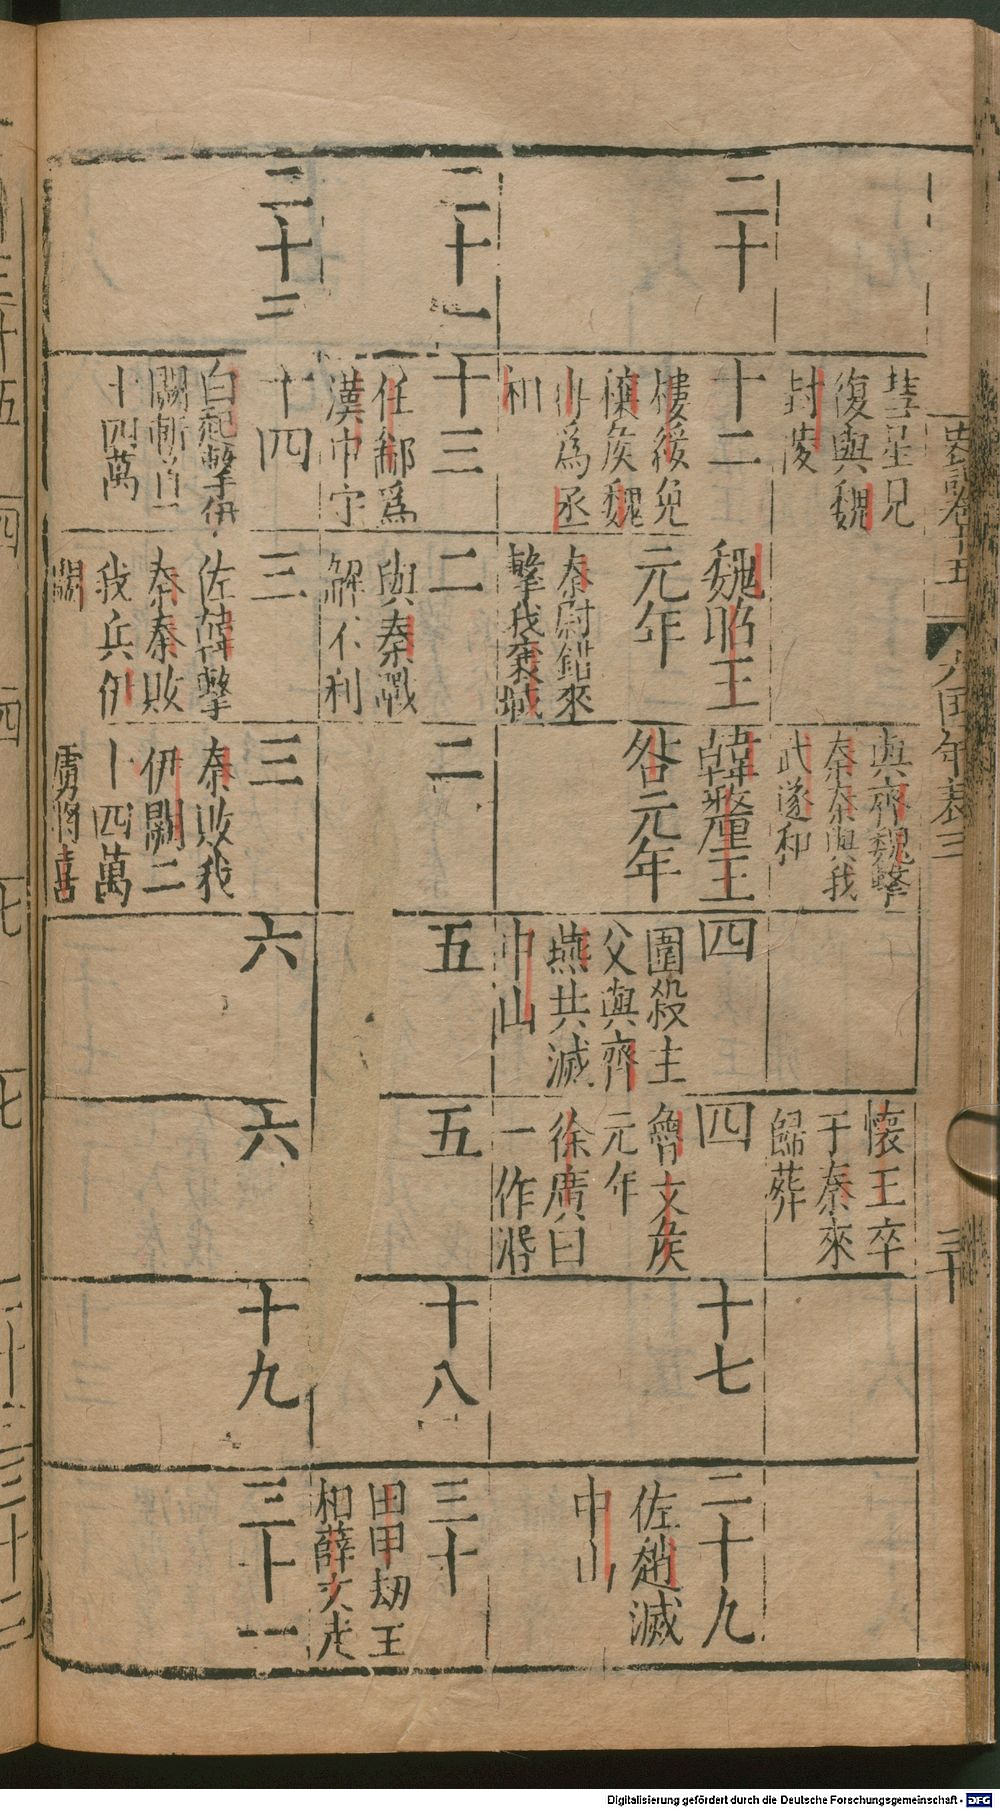 史記卷十五
六國年表三
三十
彗星見
復與魏
封陵
與齊魏擊
秦秦與我
武遂和
懷王卒
于秦來
歸葬
二十
十二
樓緩免
穰侯魏
冉爲丞
相
魏昭王
元年
秦尉錯來
擊我襄城
韓釐王
咎元年
四
圍殺主
父與齊
燕共滅
中山
四
魯文侯
元年
徐廣曰
一作湣
十七
二十九
佐趙滅
中山
二十一
十三
任鄙爲
漢中守
二
與秦戰
解不利
二
五
五
十八
三十
田甲劫王
相薛文走
二十二
十四
白起擊伊
闕斬首二
十四萬
三
佐韓擊
秦秦敗
我兵伊
闕
三
秦敗我
伊闕二
十四萬
虜將喜
六
六
十九
三十一
Digitalisierung gefördert durch die Deutsche Forschungsgemeinschaft - DFG